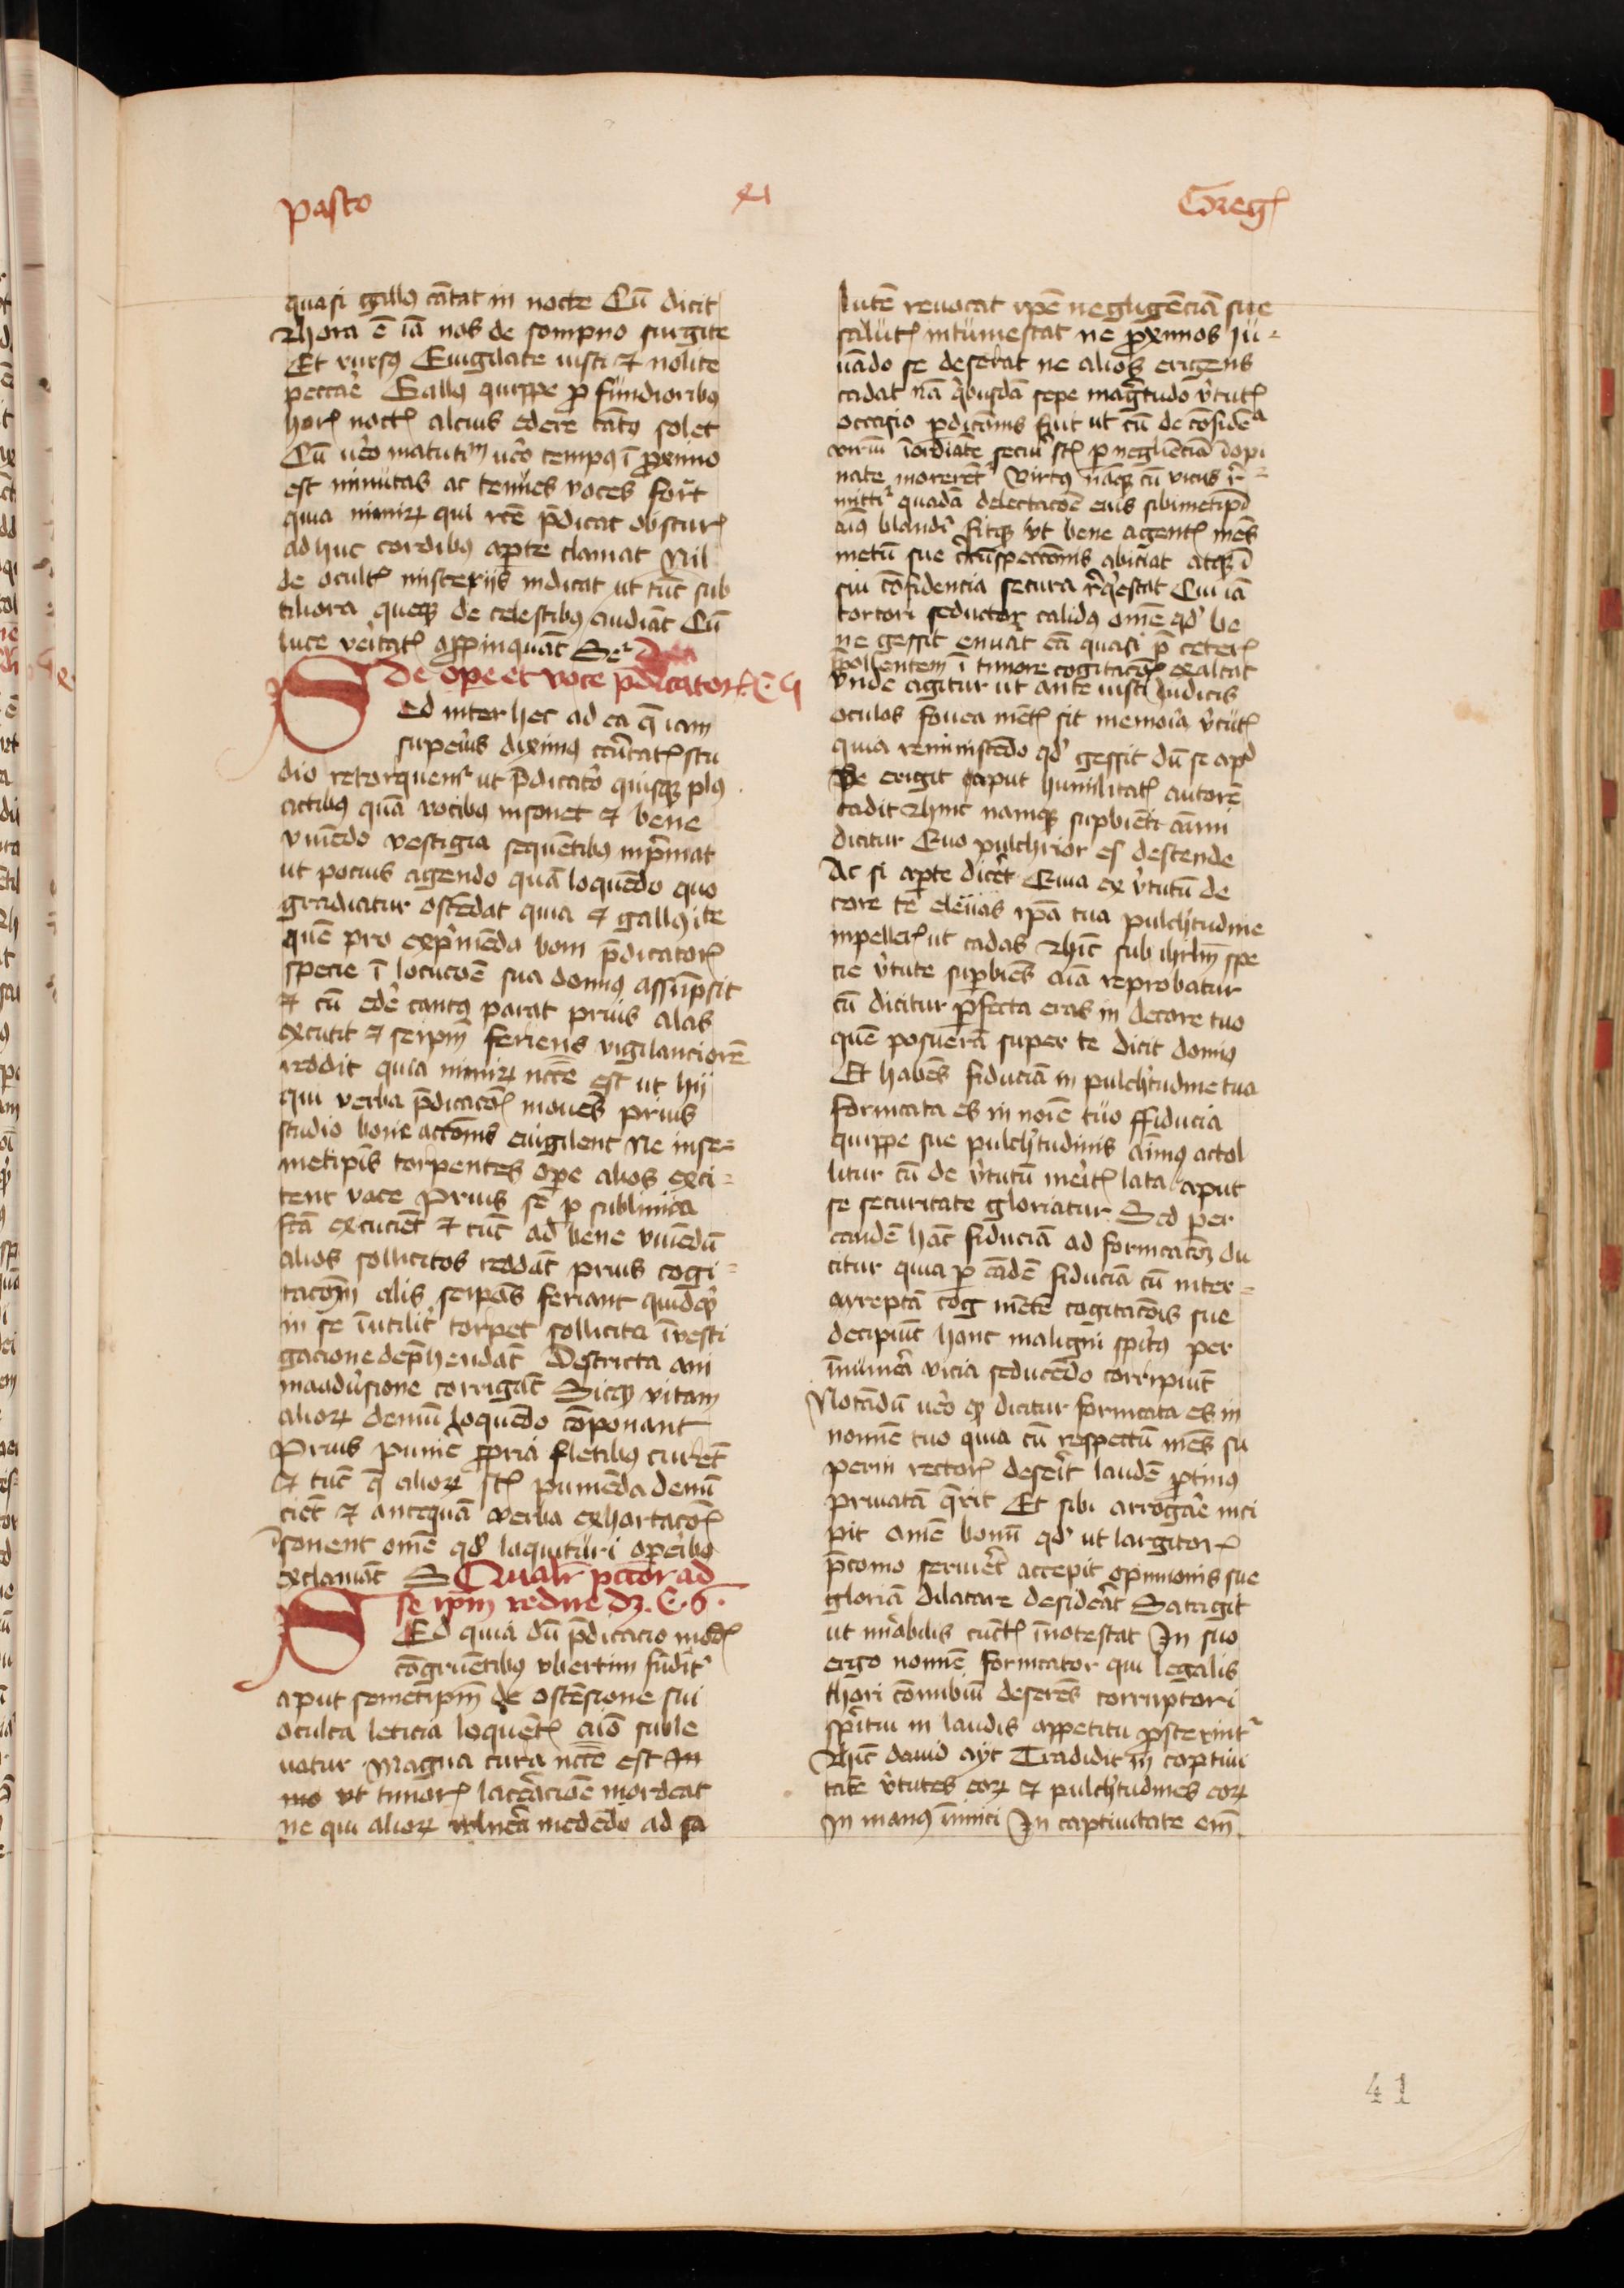 pasto
xi
Greg
quasi gallꝰ cātat in nocte Cū dicit
hora ē iā nos de sompno surgite
Et rursꝰ Euigilate iusti et nolite
peccare Gallꝰ quippe profundioribꝰ
horis noctis alcius edere cātꝰ solet
Cū vero matutinū vero tempꝰ ī proximo
est minutas ac tenues voces format
quia nimirum qui recte p̄dicat obscuris
adhuc cordibꝰ aperte clamat Nil
de ocultis misteriis indicat ut tūc sub
tiliora queqꝫ de celestibꝰ audiāt Cū
luce veritatis appinquāt Se
De ope et voce p̄dicatoris C 5
Sed inter hec ad ea que iam
superius diximꝰ caritatis stu
dio retorquemur ut p̄dicator quisqꝫ plꝰ
actibꝰ quā vocibꝰ insonet et bene
viuēdo vestigia sequētibꝰ inprimat
ut pocius agendo quā loquēdo quo
gradiatur ostēdat quia et gallꝰ iste
quē pro exprimēda boni p̄dicatoris
specie ī locucōe sua dominꝰ assūpsit
et cū edere cantꝰ parat prius alas
excutit et seipm̄ feriens vigilanciorē
reddit quia nimirum necesse est ut hii
qui verba p̄dicacōis mouēt prius
studio bone accōnis euigilent Ne in se=
metipīs torpentes ope alios exci=
tent voce Prius se p sublimia
fcā excuciēt et tūc ad bene viuēdū
alios sollicitos reddāt prius cogi=
tacōnū alis seipsos feriant quidqꝫ
in se īutiliter torpet sollicita īvesti
gacione dep̄hendāt Destricta ani
maaduersione corrigāt Sicqꝫ vitam
aliorum demū loquēdo cōponant
Prius punire propria fletibꝰ curēt
et tūc que aliorum sūt punienda denū
ciēt et antequā verba exhortacōis
īsonent omē qd' loquituri operibꝰ
exclamāt S Qualiter pdicator ad
se ipm̄ redire dꝫ. C. 6.
Sed quia dū p̄dicacio modis
cōgruētibꝰ vbertim fūditur
aput semetipm̄ de ostēsione sui
oculta leticia loquētis aīo suble
uatur Magna cura necesse est
ut timoris laceracione mordeat
ne qui aliorum vulnera medēdo ad sa
lutē revocat ip̄e negligēciā sue
salutis intumescat ne proximos iu=
uādo se deserat ne alios erigens
cadat nā quibusdā sepe magnitudo virtutis
occasio perdicionis fuit ut cū de confidēcia
virium inordinate securi sūt p negligēciā īopi
nate morerētur Virtꝰ nāqꝫ cū viciis re=
mittitur quadā delectacōe eius sibimetipi
aīꝰ blanditur fitqꝫ ut bene agentis mēs
metū sue circūspectionis abiciat atqꝫ ī
sui cōfidencia secura requiescat Cui iā
tortori seductor calidꝰ omē qd' be
ne gessit enumerat eā quasi p ceteris
p̄pollentem ī timore cogitacōis exaltat
Vnde agitur ut ante iusti iudicis
oculos fouea mētis sit memoria virtutis
quia reminiscēdo qd' gessit dū se apud
se erigit aput humilitatis autorē
cadit Hinc namqꝫ superbienti anime
dicitur Quo pulchrior es descende
Ac si aperte diceret Quia ex virtutū de
core te eleuas ip̄a tua pulchritudine
inpelleris ut cadas Hinc sub ihrlm spe
cie virtute superbiēs aīa reprobatur
cū dicitur perfecta eras in decore tuo
quē posuerā super te dicit dominꝰ
Et habēs fiduciā in pulchritudine tua
fornicata es in noīe tuo ffiducia
quippe sue pulchritudinis animꝰ actol
litur cū de virtutū meritis lata aput
se securitate gloriatur Sed per
eandē hāc fiduciā ad fornicacōꝫ du
citur quia p eādē fiduciā cū inter=
arreptā cog mētē cogitacōis sue
decipiūt hanc maligni spūs per
īnumera vicia seducēdo corripiūt
Notādū vero qꝫ dicitur fornicata es in
nomīe tuo quia cū respectū mēs su
perni rectoris deserit laudē protinꝰ
priuatā querit Et sibi arrogare inci
pit omē bonū qd' ut largitoris
p̄conio seruiret accepit opinionis sue
gloriā dilatare desiderat Satagit
ut mirabilis cūctis īnotescat In suo
ergo nomīe fornicator qui legalis
thori cōnubiū deserēs corruptori
spiritui in laudis appetitu prosternitur
Hinc dauid ayt Tradidit in captiui
tatē virtutes eorum et pulchritudines eorum
In manꝰ inimici In captiuitate em̄
41